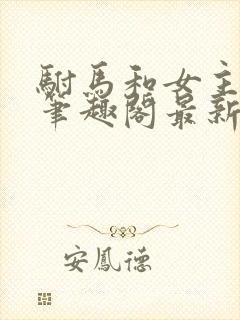 駙馬和女主
筆趣閣最新
安鳳德